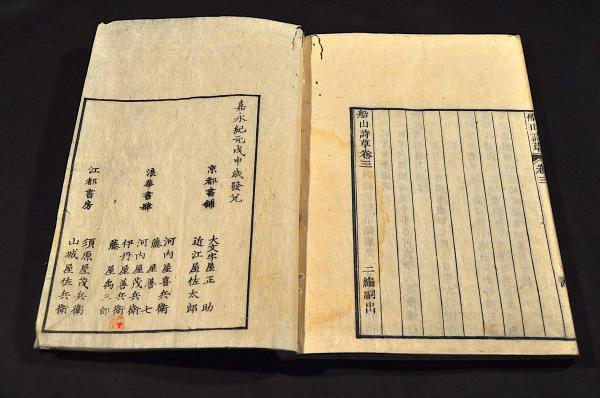 船山詩草 卷三
船山詩草卷三 二編嗣出
嘉永紀元戊申歳發兌
京都書舗
大文字屋正助
近江屋佐太郎
浪華書肆
河内屋喜兵衛
藤屋善七
河内屋茂兵衛
伊丹屋善兵衛
藤屋禹三郎
江都書房
須原屋茂兵衛
山城屋佐兵衛